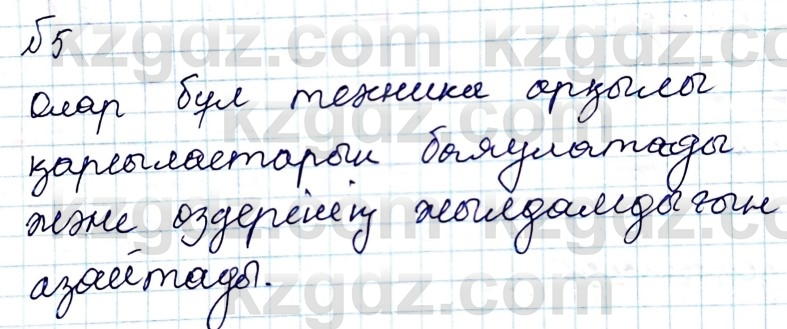 №5
Олар бұл техника арқылы
қарсыластарын баяулатады
және өздерінің жылдамдығын
азайтады.
kzgdz.com
kzgdz.com
kzgdz.com
kzgdz.com
kzgdz.com
kzgdz.com